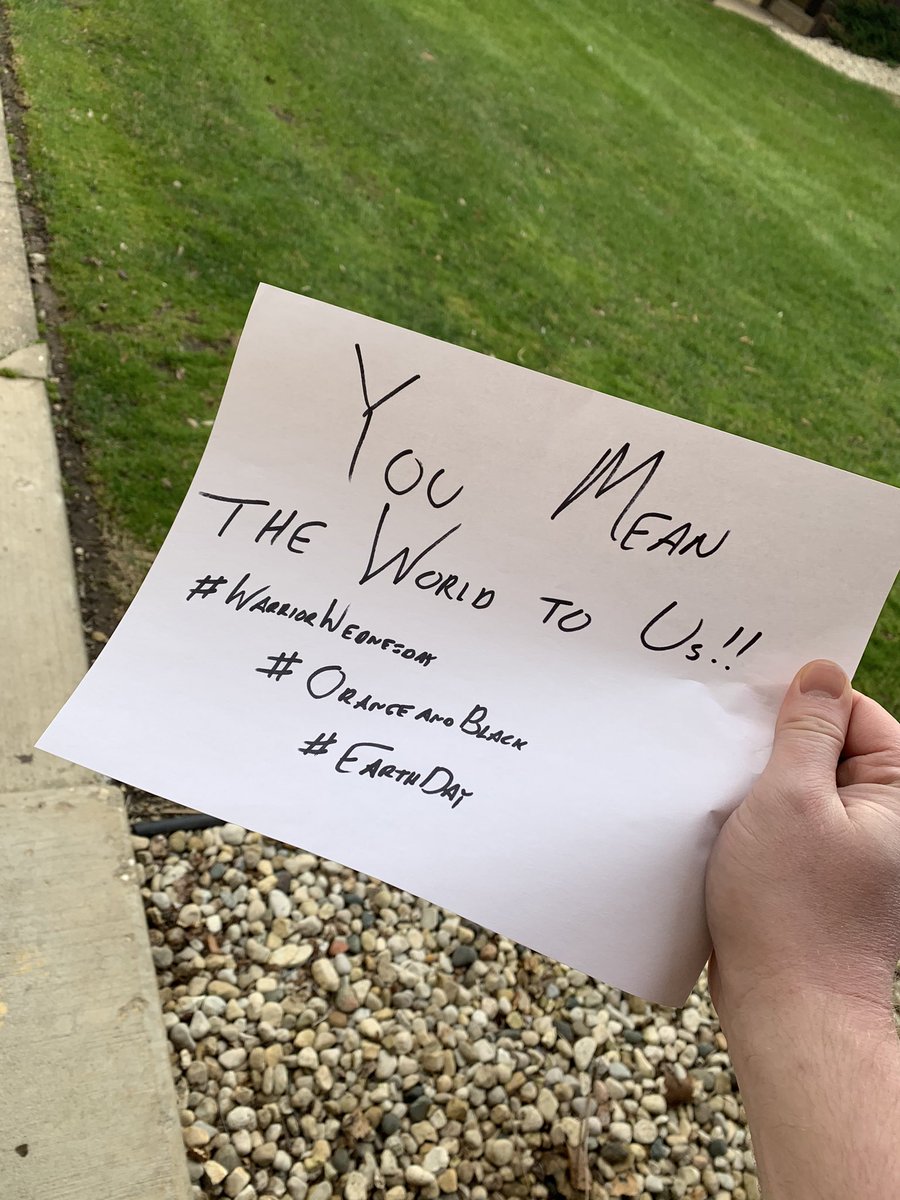 You Mean
The World to Us!!
#WarriorWednesday
#OrangeandBlack
#EarthDay